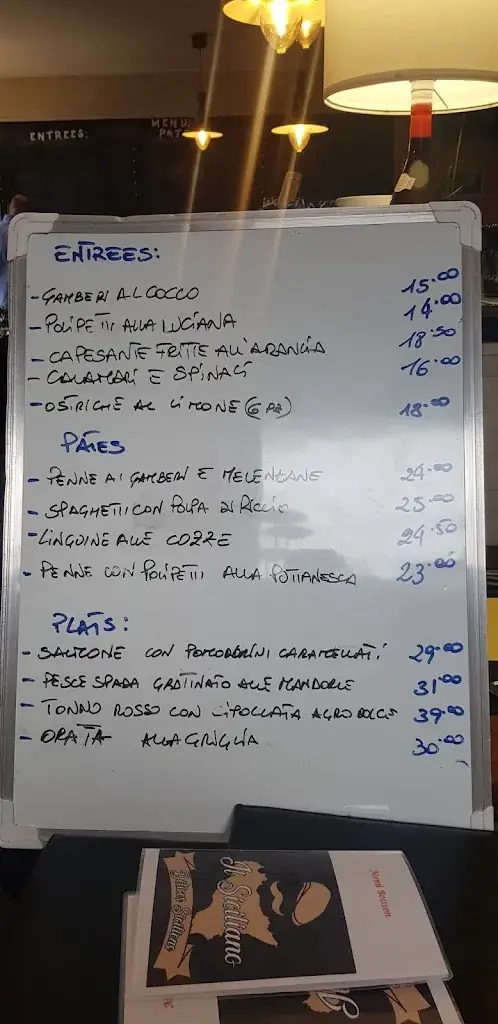 ENTREES:
MENU
PAT
ENTREES:
- GAMBERI AL COCCO 15.00
- POLIPETTI ALLA LUCIANA 14.00
- CAPESANTE FRITTE ALL'ARANCIA 18.50
- CALAMARI E SPINACI 16.00
- OSTRICHE AL LIMONE (6 PZ) 18.00
PÂTES
- PENNE AI GAMBERI E MELENZANE 24.00
- SPAGHETTI CON POLPA DI RICCIO 25.00
- LINGUINE ALLE COZZE 24.50
- PENNE CON POLIPETTI ALLA PUTTANESCA 23.00
PLATS:
- SALMONE CON POMODORINI CARAMELLATI 29.00
- PESCE SPADA GRATINATO ALLE MANDORLE 31.00
- TONNO ROSSO CON CIPOLLATA AGRODOLCE 39.00
- ORATA ALLA GRIGLIA 30.00
Il Siciliano
Délices Siciliens
Menu Boisson